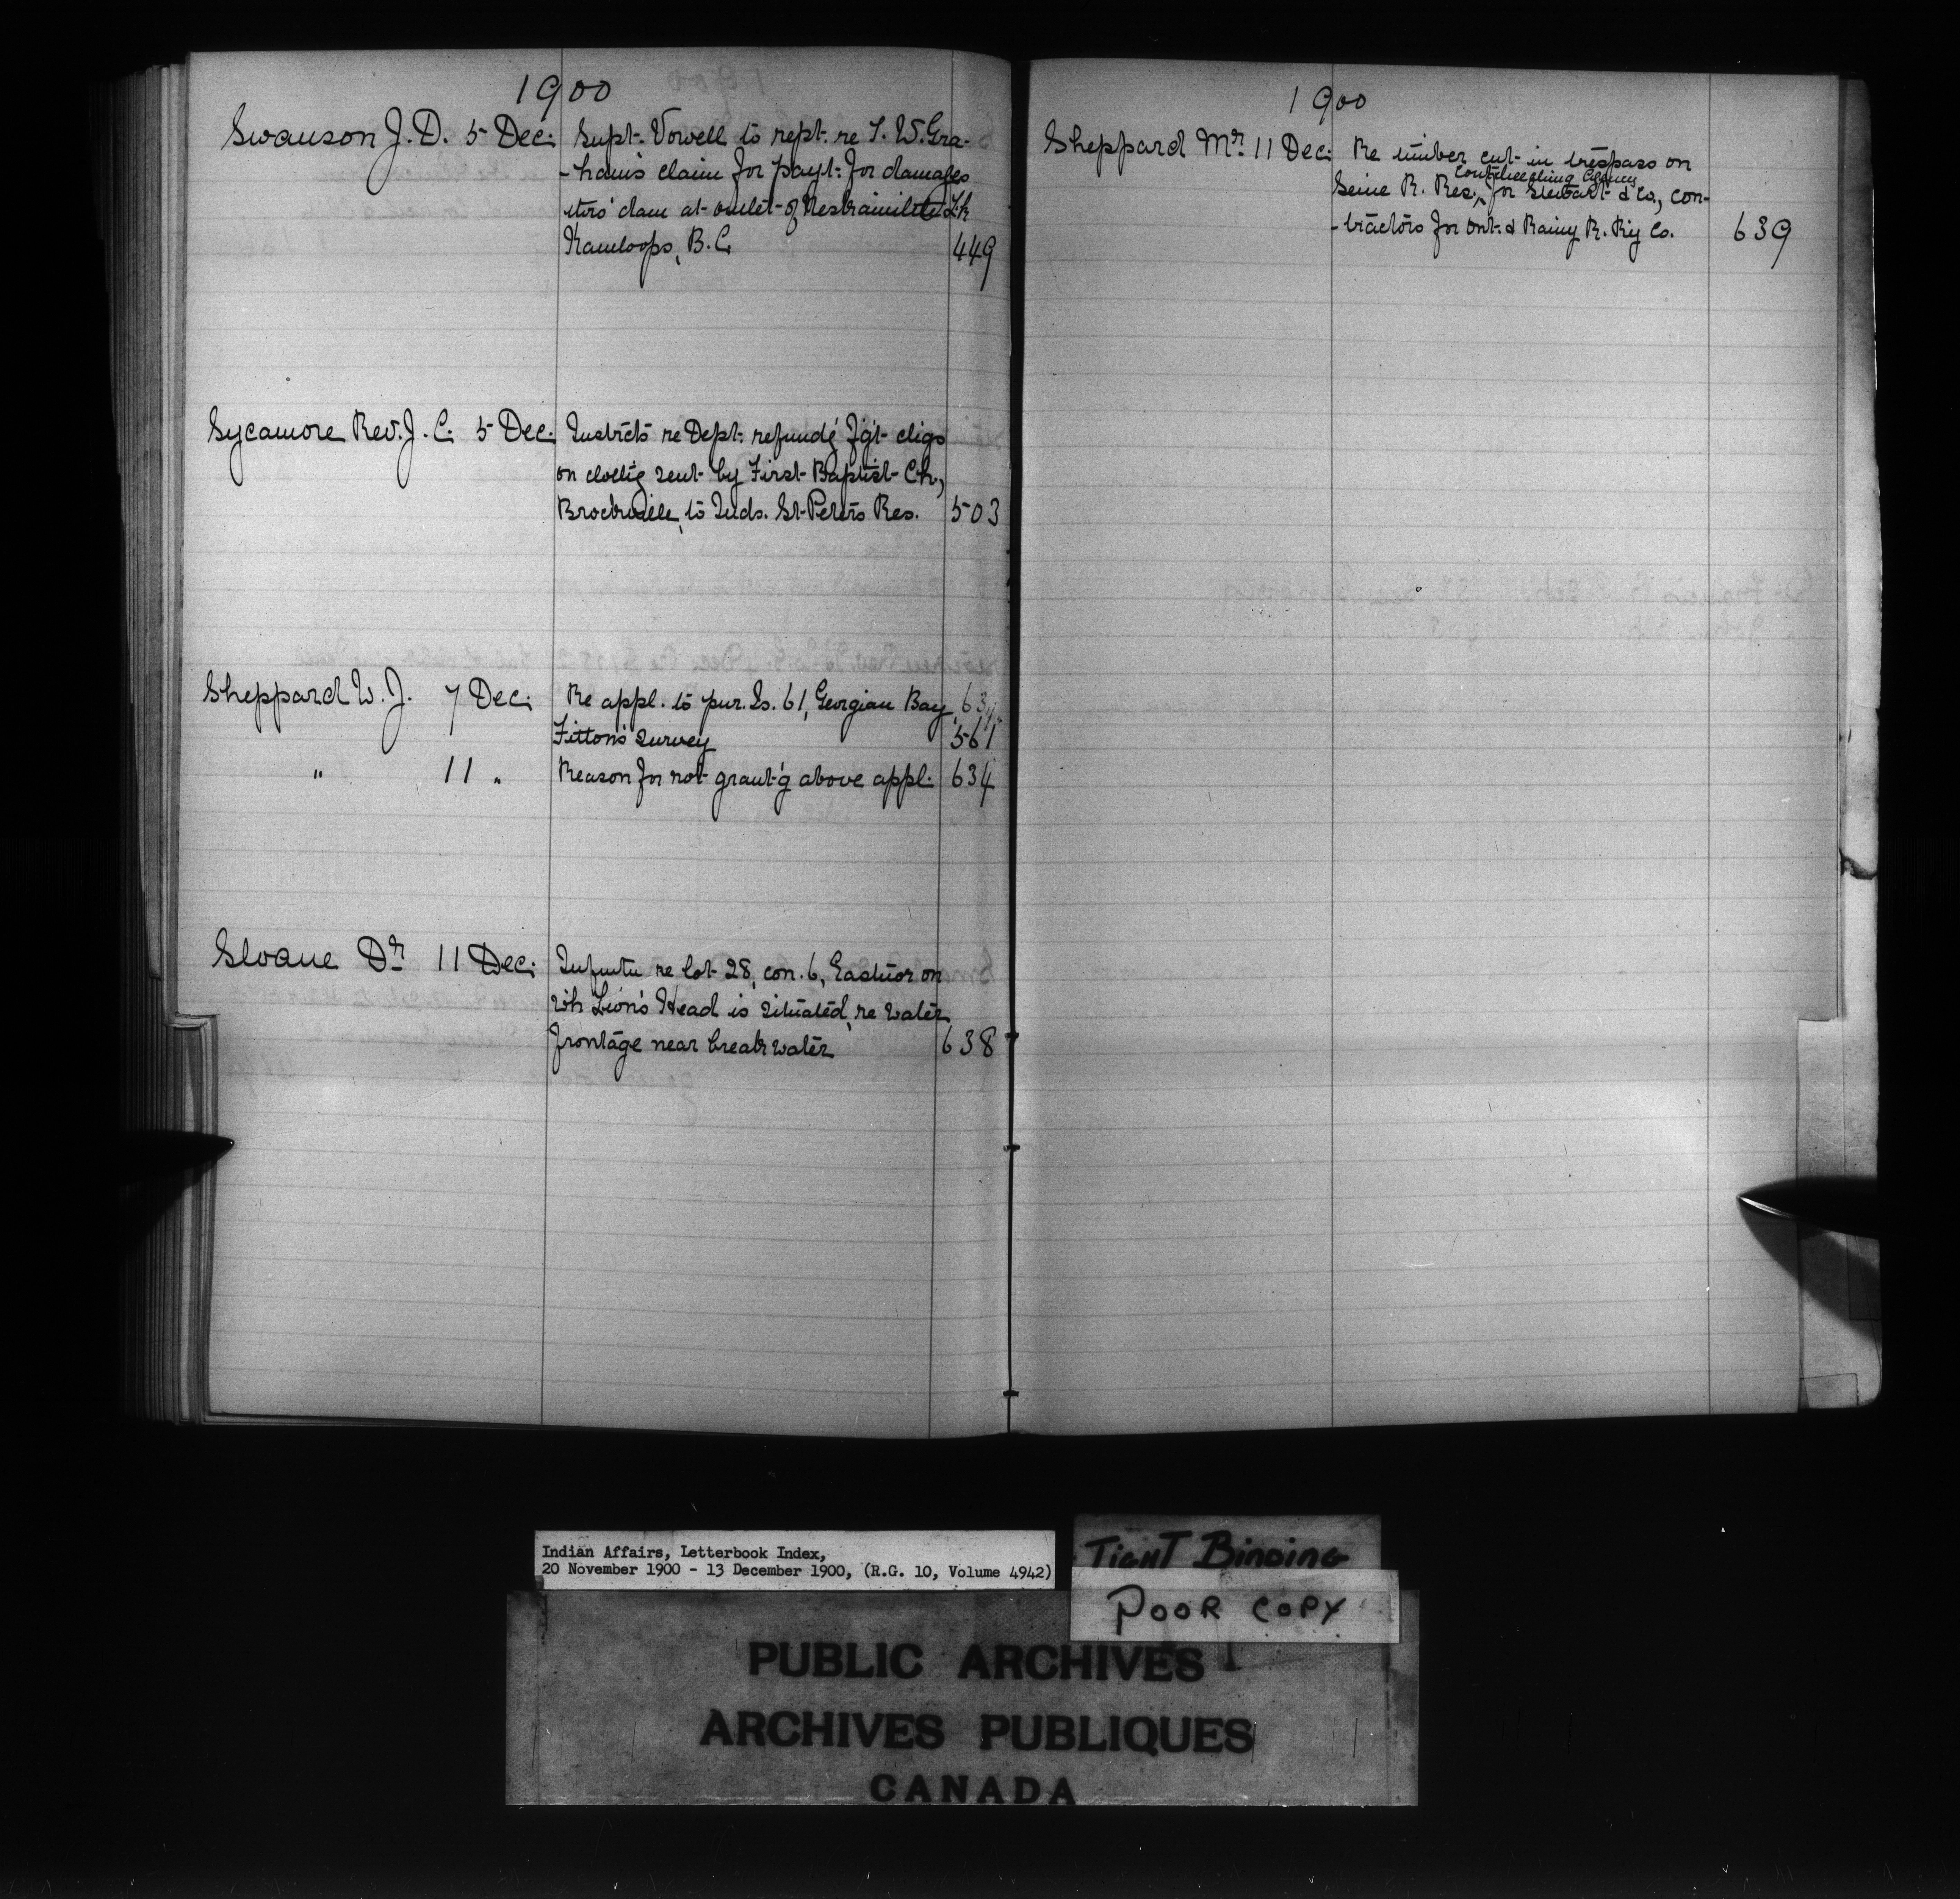 1900
Swanson J. D. 5 Dec. Supt. Vowell to rept. re T. W. Gra-
-ham's claim for payt. for damages
to his dam at outlet of Lk
Kamloops, B.C. 449
Sycamore Rev. J. C. 5 Dec. Instrcts re Dept. refundg fgt. chgs
on clothg sent by First Baptist Ch,
Brockville, to Inds. St. Peters Res. 503
Sheppard W. J. 7 Dec. Re appl. to pur. Is. 61, Georgian Bay, 634
Fitton's survey 561
" 11 " Reason for not grant'g above appl. 634
Sloane Dr. 11 Dec. re lot 28, con. 6, Eastnor on
wh Lion's Head is situated, re water
frontage near breakwater 638
1900
Sheppard Mr. 11 Dec. Re timber cut in trespass on
Coutcheeching Agency
Seine R. Res., for Stewart & Co., con-
-tractors for Ont. & Rainy R. Ry Co. 639
Indian Affairs, Letterbook Index,
20 November 1900 - 13 December 1900, (R.G. 10, Volume 4942)
TIGHT BINDING
POOR COPY
PUBLIC ARCHIVES
ARCHIVES PUBLIQUES
CANADA